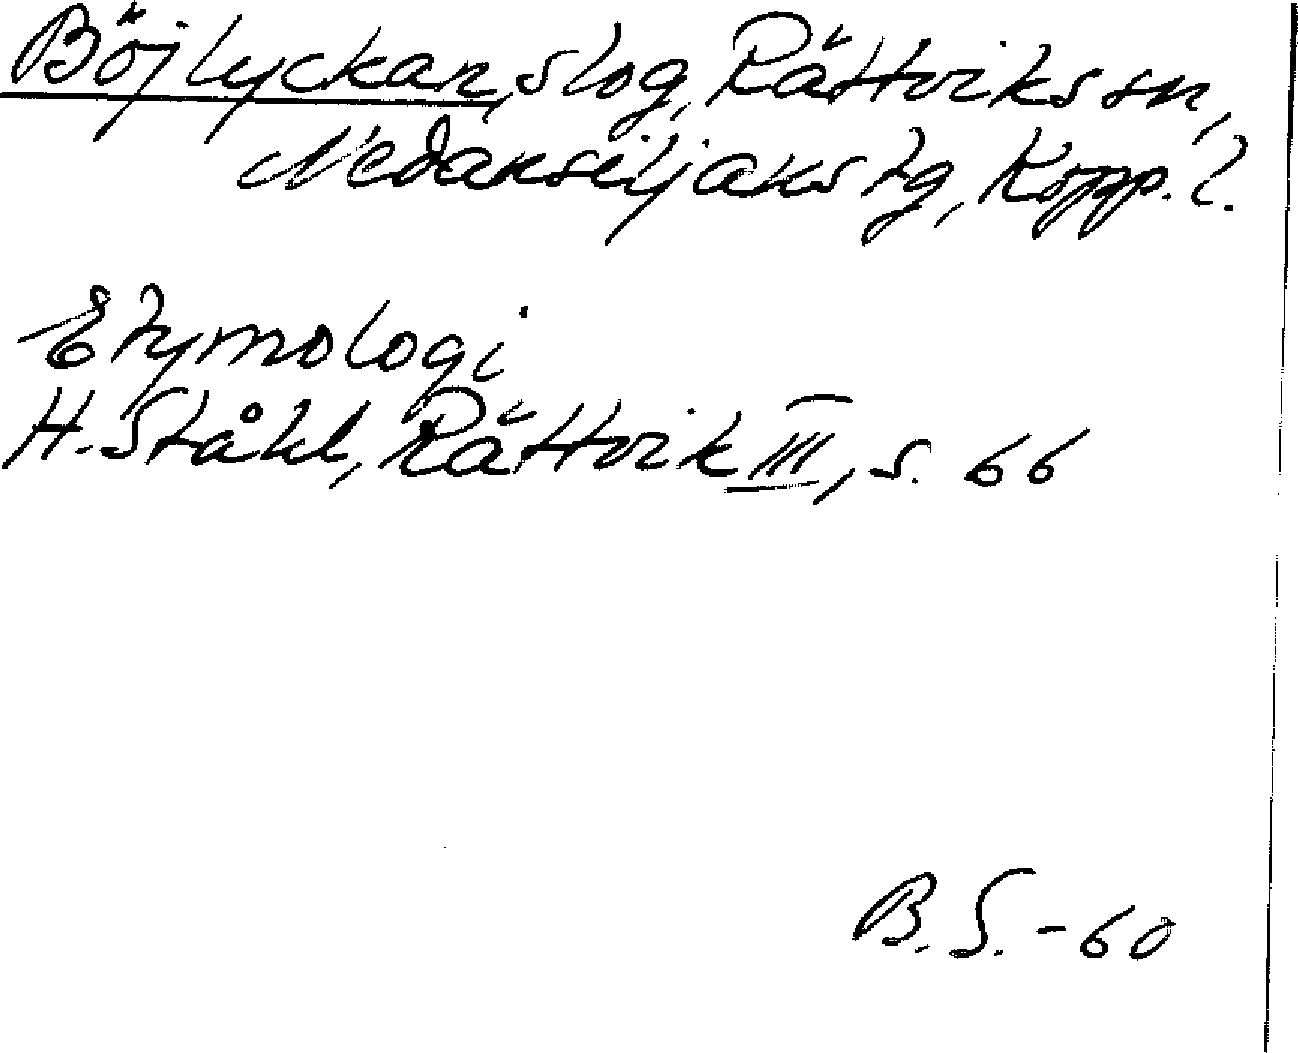 Böjlyckan, slog, Rättviks sn,
Nedansiljans tg, Kopp. l.
Etymologi
H. Ståhl, Rättvik III, s. 66
B. S. - 60